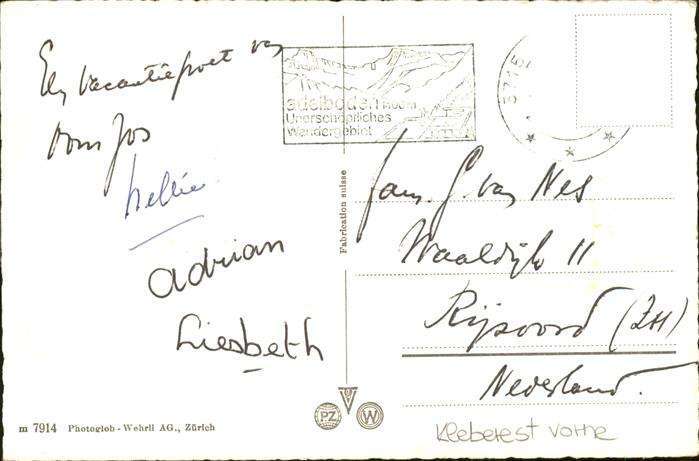 Een vacantiegroet van
oom Jos
Nellie
adrian
Liesbeth
m 7914 Photoglob - Wehrli AG., Zürich
adelboden
Unerschöpfliches
Wandergebiet
3715
Fabrication suisse
PZ
W
Fam. G. van Nes
Waaldijk 11
Rijsoord (ZH)
Nederland.
Kleberest vorne